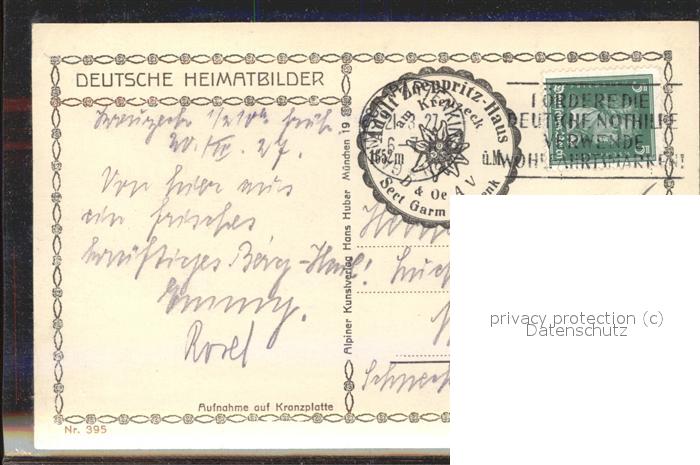 DEUTSCHE HEIMATBILDER
Kreuzeck 1/2 10h früh
20. VII. 27.
Von hier aus
ein frisches
kräftiges Berg-Heil!
Emmy.
Rosel
Aufnahme auf Kranzplatte
Nr. 395
Alpiner Kunstverlag Hans Huber München 19
Adolf Zoeppritz-Haus
am Kreuzeck
1652m ü.M
D & Oe A V
Sect Garm
FÖRDERE DIE
DEUTSCHE NOTHILFE
VERWENDE
WOHLFAHRTSMARKEN!
5 5
privacy protection (c)
Datenschutz